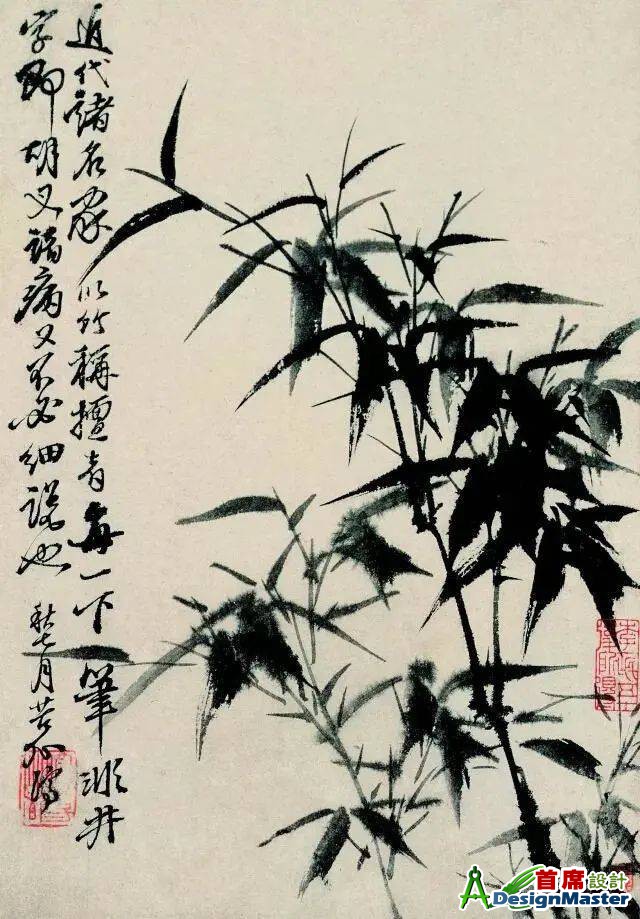 近代諸名家以竹稱擅者每一下筆非井
字即胡叉諸病又不必細說也
秋七月苦瓜濟
首席設計
DesignMaster